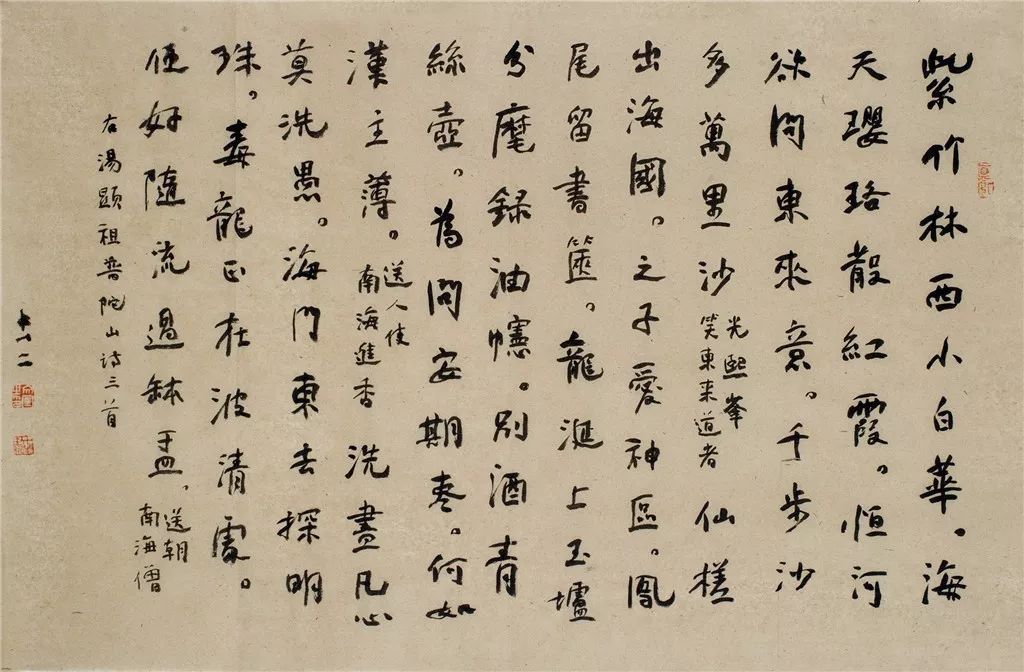 紫竹林西小白華。海
天瓔珞散紅霞。恒河
欲問東來意。千步沙
多萬里沙 光熙峯笑東来道者 仙槎
出海國。之子愛神區。鳳
尾留書篋。龍涎上玉壚
分麾録油幰。别酒青
絲壺。為問安期枣。何如
漢主薄。送人使南海進香 洗盡凡心
莫洗愚。海門東去探明
珠。毒龍正在波清處。
便好隨流過缽盂。送朝南海僧
右湯顯祖普陀山诗三首